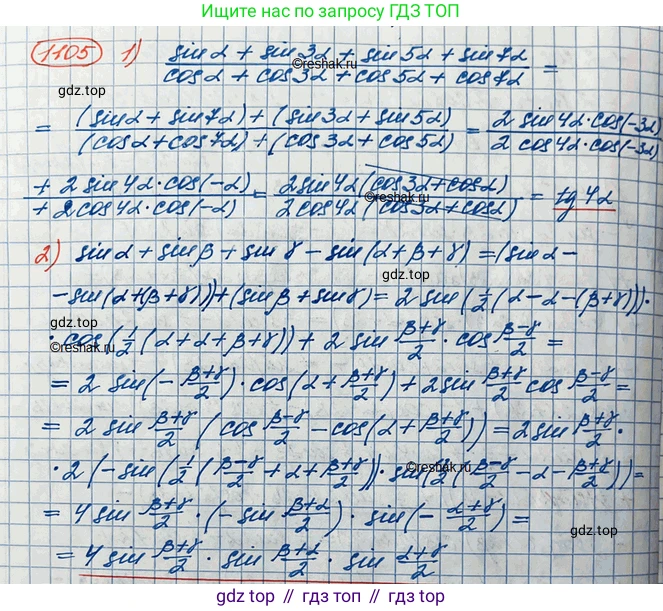 Ищите нас по запросу ГДЗ ТОП
1105 1) (sin α + sin 3α + sin 5α + sin 7α)/(cos α + cos 3α + cos 5α + cos 7α) =
gdz.top
©reshak.ru
= ((sin α + sin 7α) + (sin 3α + sin 5α))/((cos α + cos 7α) + (cos 3α + cos 5α)) = (2 sin 4α · cos(-3α)
2 cos 4α · cos(-3α)
(+ 2 sin 4α · cos(-α))/(+ 2 cos 4α · cos(-α)) = (2 sin 4α (cos 3α + cos α))/(2 cos 4α (cos 3α + cos α)) = tg 4α
2) sin α + sin β + sin γ - sin(α + β + γ) = (sin α -
- sin(α + (β + γ))) + (sin β + sin γ) = 2 sin(½(α - α - (β + γ))) ·
gdz.top
©reshak.ru
· cos(½(α + α + β + γ)) + 2 sin (β+γ)/2 · cos (β-γ)/2 =
= 2 sin(-(β+γ)/2) · cos(α + (β+γ)/2) + 2 sin (β+γ)/2 cos (β-γ)/2 =
= 2 sin (β+γ)/2 (cos (β-γ)/2 - cos(α + (β+γ)/2)) = 2 sin (β+γ)/2 ·
· 2 (-sin(½((β-γ)/2 + α + (β+γ)/2)) · sin(½((β-γ)/2 - α - (β+γ)/2)) =
©reshak.ru
= 4 sin (β+γ)/2 · (-sin (β+α)/2) · sin(-(α+γ)/2) =
gdz.top
= 4 sin (β+γ)/2 · sin (β+α)/2 · sin (α+γ)/2
gdz.top // гдз.топ // gdz.top